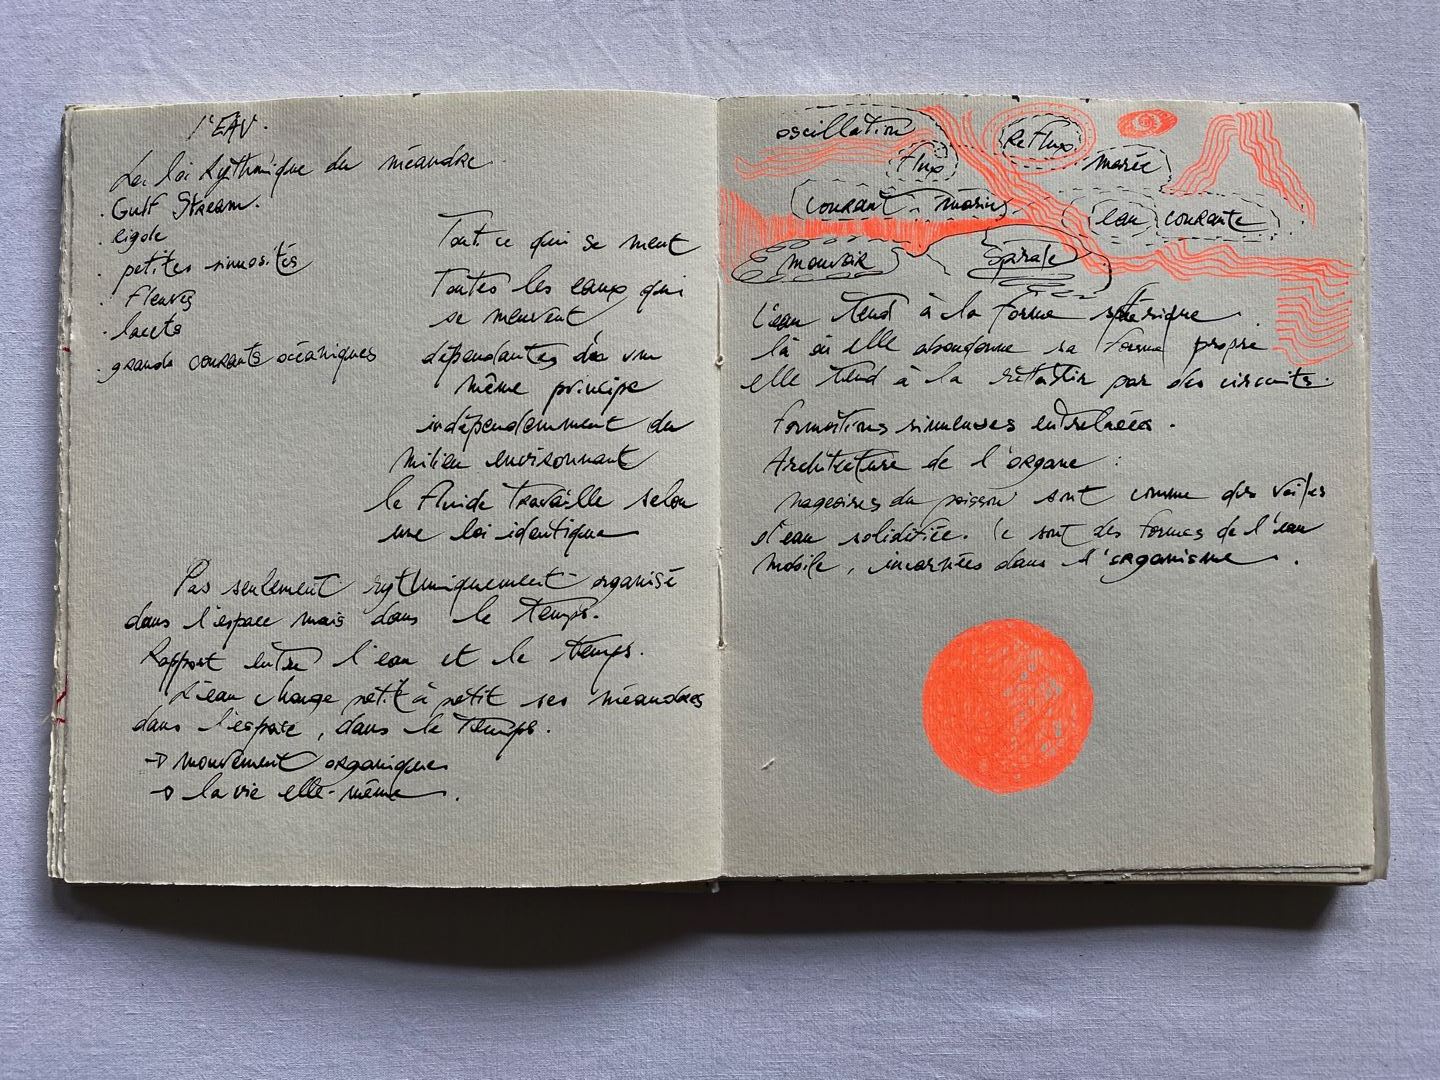 l'EAU.
La loi rythmique du méandre.
. Gulf Stream.
. rigole
. petites sinuosités
. fleuves
. lacets
. grands courants océaniques
Tout ce qui se meut
Toutes les eaux qui
se meuvent
dépendantes d'un
même principe
indépendemment du
milieu environnant
le fluide travaille selon
une loi identique
Pas seulement rythmiquement organisé
dans l'espace mais dans le temps.
Rapport entre l'eau et le temps.
L'eau change petit à petit ses méandres
dans l'espace, dans le temps.
→ mouvement organique
→ la vie elle-même.
oscillation
Reflux
flux
marée
courant marin
eau courante
mouvoir
Spirale
L'eau tend à la forme sphérique.
là où elle abandonne sa forme propre
elle tend à la rétablir par des circuits.
formations sinueuses entrelacées.
Architecture de l'organe :
nageoires du poisson sont comme des voiles
d'eau solidifiée. Ce sont des formes de l'eau
mobile, incarnées dans l'organisme.